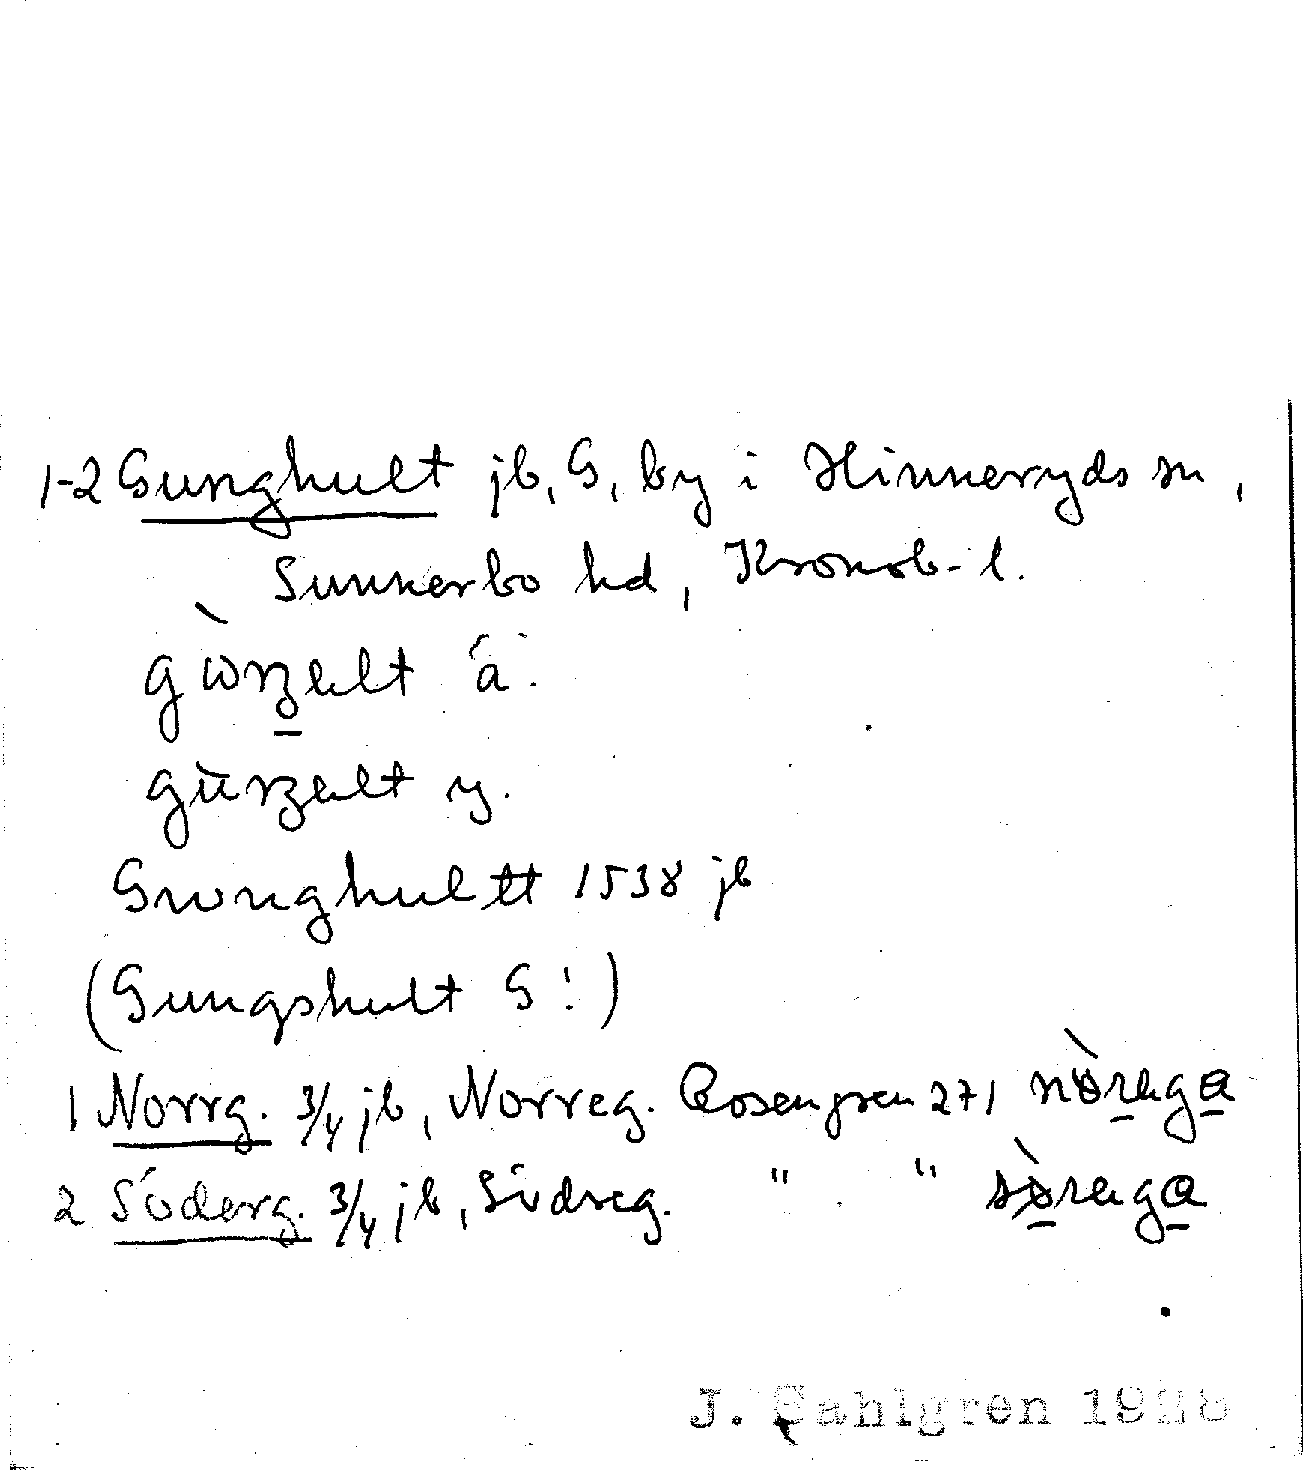 1-2 Gunghult jb, G, by i Hinneryds sn,
Sunnerbo hd, Kronob-l.
gùŋelt ä.
gùŋelt y.
Gwnghultt 1538 jb
(Gungshult G!)
1 Norrg. 3/4 jb, Norreg. Rosengren 271 nòrega
2 Söderg. 3/4 jb, Södreg. " " sòrega
J. Sahlgren